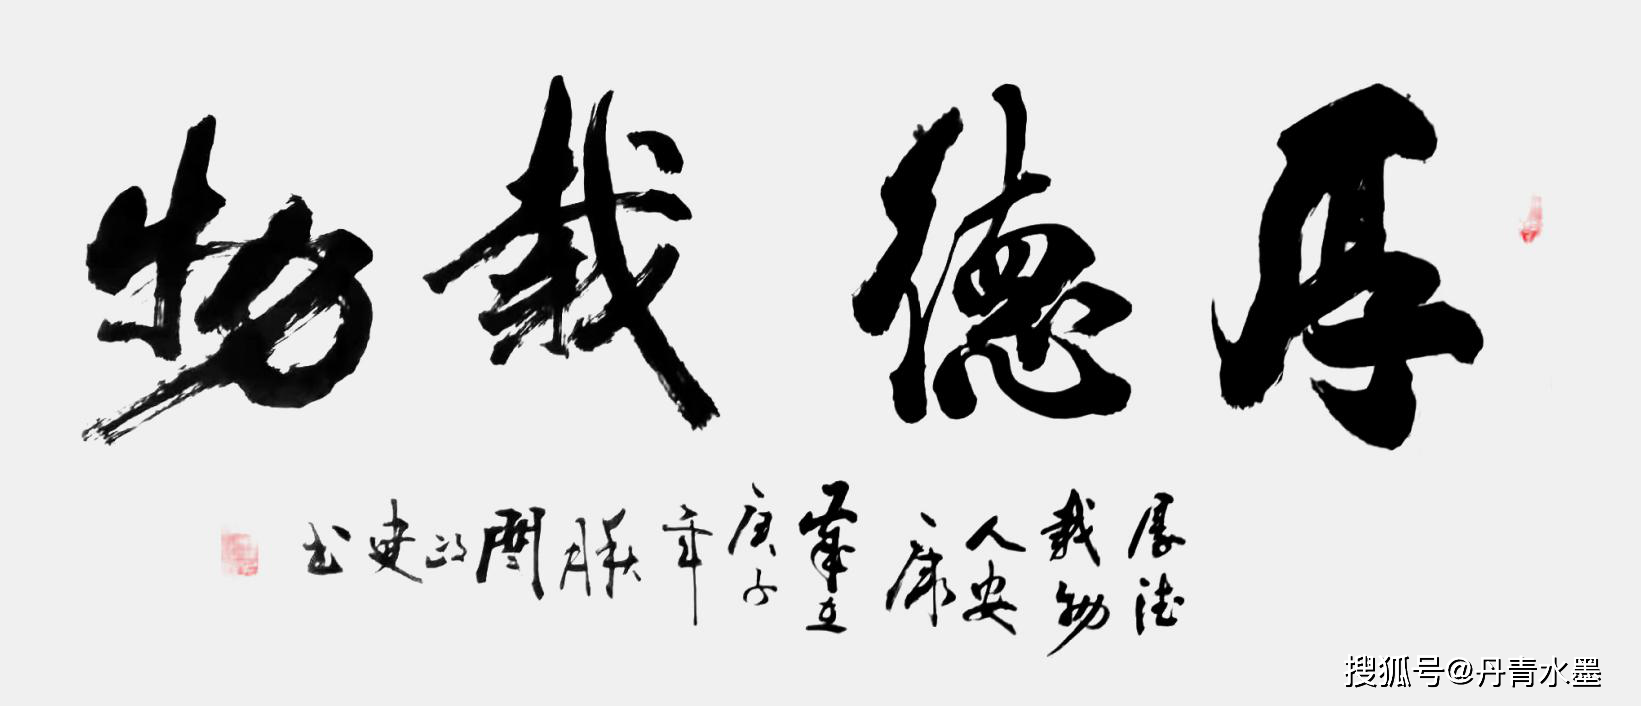 厚德载物
厚德
载物
人安
康
岁在
庚子
年
秋月
建
书
搜狐号@丹青水墨